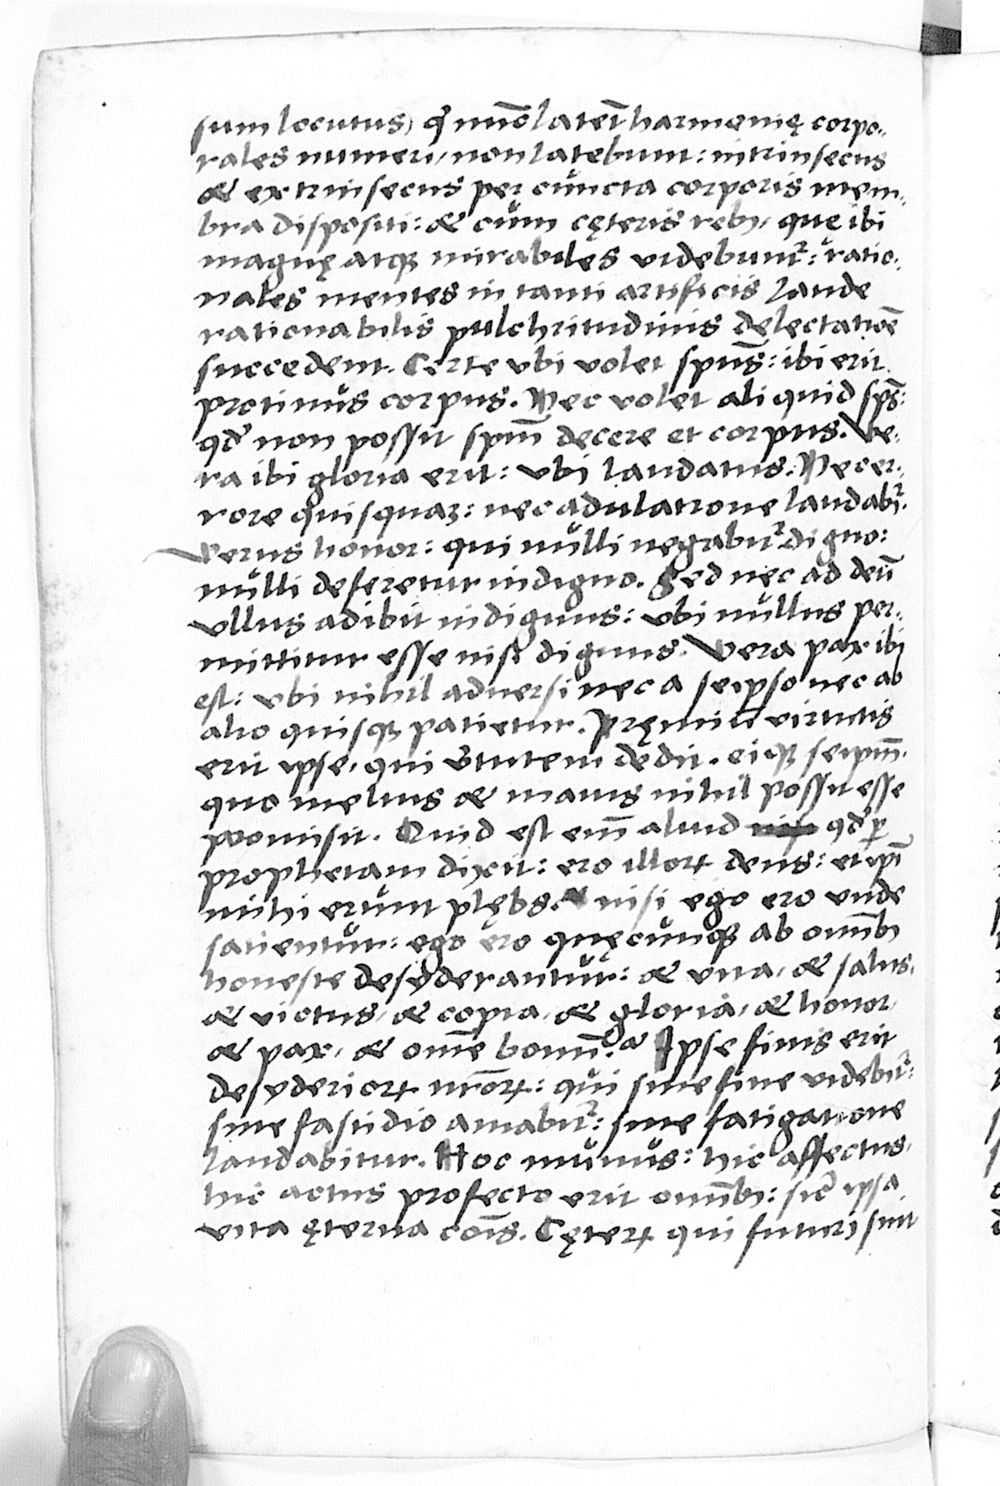 sum locutus) q̃ nũc latẽt harmonię corpo-
rales numeri, non latebunt: intrinsecus
& extrinsecus per cuncta corporis mem-
bra dispositi: & cum cęteris reb9, que ibi
magnę atq3 mirabiles videbunt᷑: ratio-
nales mentes in tanti artificis laude
rationabilis pulchritudinis delectatiõe
succedent. Certe vbi volet spũs: ibi erit
protinus corpus. Nec volet aliquid spũs:
qđ non possit spm̃ decere et corpus. Ve-
ra ibi gloria erit: vbi laudatus. Nec er-
rore quisquaz: nec adulatione laudabit᷑.
Verus honor: qui nulli negabit᷑ digno:
nulli deferetur indigno. Sed nec ad deũ
vllus adibit indignus: vbi nullus per-
mittitur esse nisi dignus. Vera pax ibi
est: vbi nihil adversi nec a seipso nec ab
alio quisq3 patietur. Pręmiũ virtutis
erit ipse, qui v̓tutem dedit. eiq3 seipm̃.
quo melius & maius nihil possit esse
promisit. Quid est em̃ aliud qđ p̲
prophetam dixit: ero illoꝝ deus: et ip̃i
mihi erunt plębs. nisi ego ero vnde
satientur: ego ero quęcunq3 ab omĩb9
honeste desyderantur: & vita, & salus,
& victus, & copia, & gloria, & honor,
& pax, & om̃e bonũ? Ipse finis erit
desyderioꝝ nr̃oꝝ: qui sine fine videbit᷑:
sine fastidio amabit᷑: sine fatigatione
laudabitur. Hoc munus: hic affectus,
hic actus profecto erit omĩb9: sic̃ ipsa
vita ęterna cõis. Cęteꝝ qui futuri sint